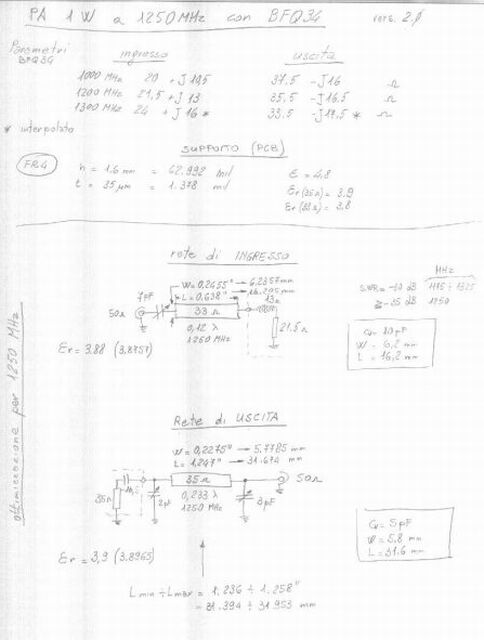 PA 1W a 1250MHz con BFQ34 vers. 2.0
Parametri BFQ34
ingresso uscita
1000 MHz 20 + J 10,5 37,5 - J16 Ω
1200 MHz 21,5 + J 13 35,5 - J16.5 Ω
1300 MHz 24 + J 16 * 33,5 - J17,5 * Ω
* interpolato
SUPPORTO (PCB)
FR4
h = 1.6 mm = 62.992 mil
t = 35 µm = 1.378 mil
ε = 4,8
εr (35Ω) = 3.9
εr (33Ω) = 3.8
ottimizzazione per 1250 MHz
rete di INGRESSO
W = 0,2455" → 6.2357 mm
L = 0,638" → 16.205 mm
7pF
50Ω
33 Ω
13Ω
0,12 λ
1250 MHz
21.5Ω
Er = 3.88 (3.8757)
MHz
SWR = -20 dB 1175 ÷ 1325
≥ -35 dB 1250
Cv = 10 pF
W = 6,2 mm
L = 16,2 mm
Rete di USCITA
W = 0,2275" → 5.7785 mm
L = 1,247" → 31.674 mm
35Ω
50Ω
35Ω
2pF
0,233 λ
1250 MHz
3pF
Er = 3,9 (3.8965)
Cv = 5pF
W = 5.8 mm
L = 31.6 mm
L min ÷ L max = 1.236 ÷ 1.258"
= 31.394 ÷ 31.953 mm